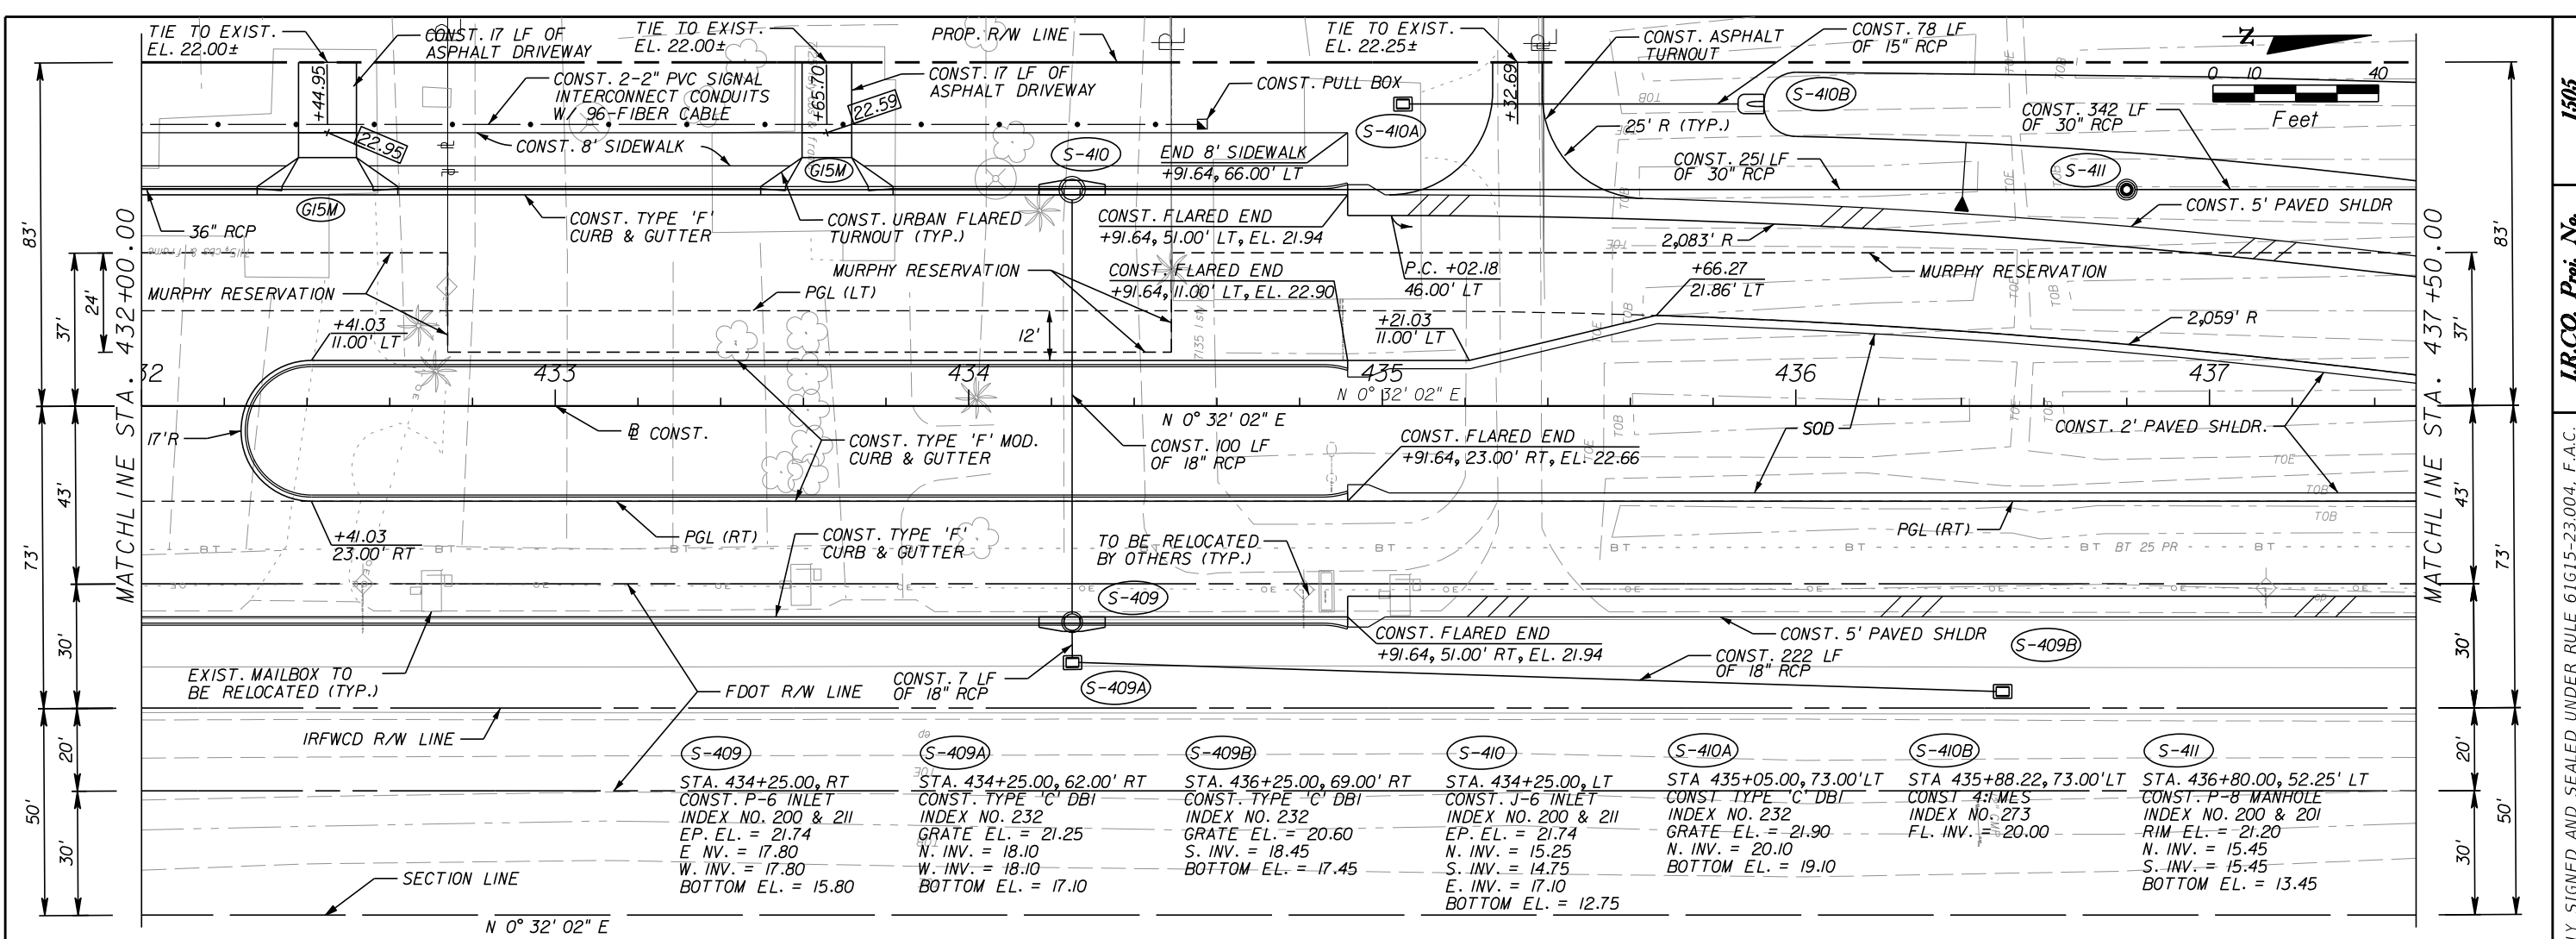 TIE TO EXIST.
EL. 22.00±
CONST. 17 LF OF
ASPHALT DRIVEWAY
TIE TO EXIST.
EL. 22.00±
PROP. R/W LINE
TIE TO EXIST.
EL. 22.25±
CONST. ASPHALT
TURNOUT
CONST. 78 LF
OF 15" RCP
N
0 10 40
Feet
+44.95
22.95
CONST. 2-2" PVC SIGNAL
INTERCONNECT CONDUITS
W/ 96-FIBER CABLE
+65.70
22.59
CONST. 17 LF OF
ASPHALT DRIVEWAY
CONST. PULL BOX
+32.69
S-410A
25' R (TYP.)
S-410B
CONST. 342 LF
OF 30" RCP
CONST. 8' SIDEWALK
G15M
S-410
END 8' SIDEWALK
+91.64, 66.00' LT
CONST. 251 LF
OF 30" RCP
S-411
G15M
36" RCP
CONST. TYPE 'F'
CURB & GUTTER
CONST. URBAN FLARED
TURNOUT (TYP.)
CONST. FLARED END
+91.64, 51.00' LT, EL. 21.94
2,083' R
CONST. 5' PAVED SHLDR
MURPHY RESERVATION
PGL (LT)
MURPHY RESERVATION
CONST. FLARED END
+91.64, 11.00' LT, EL. 22.90
P.C. +02.18
46.00' LT
+66.27
21.86' LT
MURPHY RESERVATION
83'
37'
24'
MATCHLINE STA. 432+00.00
+41.03
11.00' LT
12'
+21.03
11.00' LT
2,059' R
MATCHLINE STA. 437+50.00
37'
83'
32
433
434
435
436
437
N 0° 32' 02" E
N 0° 32' 02" E
17'R
B CONST.
CONST. TYPE 'F' MOD.
CURB & GUTTER
CONST. 100 LF
OF 18" RCP
CONST. FLARED END
+91.64, 23.00' RT, EL. 22.66
SOD
CONST. 2' PAVED SHLDR.
43'
73'
+41.03
23.00' RT
PGL (RT)
CONST. TYPE 'F'
CURB & GUTTER
TO BE RELOCATED
BY OTHERS (TYP.)
PGL (RT)
BT 25 PR
43'
73'
S-409
30'
EXIST. MAILBOX TO
BE RELOCATED (TYP.)
FDOT R/W LINE
CONST. 7 LF
OF 18" RCP
S-409A
CONST. FLARED END
+91.64, 51.00' RT, EL. 21.94
CONST. 5' PAVED SHLDR
CONST. 222 LF
OF 18" RCP
S-409B
30'
IRFWCD R/W LINE
20'
50'
30'
SECTION LINE
N 0° 32' 02" E
S-409
STA. 434+25.00, RT
CONST. P-6 INLET
INDEX NO. 200 & 211
EP. EL. = 21.74
E NV. = 17.80
W. INV. = 17.80
BOTTOM EL. = 15.80
S-409A
STA. 434+25.00, 62.00' RT
CONST. TYPE 'C' DBI
INDEX NO. 232
GRATE EL. = 21.25
N. INV. = 18.10
W. INV. = 18.10
BOTTOM EL. = 17.10
S-409B
STA. 436+25.00, 69.00' RT
CONST. TYPE 'C' DBI
INDEX NO. 232
GRATE EL. = 20.60
S. INV. = 18.45
BOTTOM EL. = 17.45
S-410
STA. 434+25.00, LT
CONST. J-6 INLET
INDEX NO. 200 & 211
EP. EL. = 21.74
N. INV. = 15.25
S. INV. = 14.75
E. INV. = 17.10
BOTTOM EL. = 12.75
S-410A
STA 435+05.00, 73.00'LT
CONST TYPE 'C' DBI
INDEX NO. 232
GRATE EL. = 21.90
N. INV. = 20.10
BOTTOM EL. = 19.10
S-410B
STA 435+88.22, 73.00'LT
CONST 4:1 MES
INDEX NO. 273
FL. INV. = 20.00
S-411
STA. 436+80.00, 52.25' LT
CONST. P-8 MANHOLE
INDEX NO. 200 & 201
RIM EL. = 21.20
N. INV. = 15.45
S. INV. = 15.45
BOTTOM EL. = 13.45
20'
50'
30'
1505
I.R.CO. Proj. No.
SIGNED AND SEALED UNDER RULE 61G15-23.004, F.A.C.